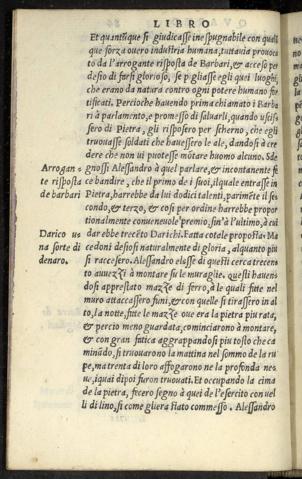 LIBRO
Et quantũque si giudicasse inespugnabile con queli
que forza overo industria humana, tuttavia provoca
to da l'arrogante risposta de Barbari, & acceso per
desio di farsi glorioso, se pigliasse egli quei luoghi,
che erano da natura contro ogni potere humano for
tificati. Percioche havendo prima chiamato i Barba
ri à parlamento, e promesso di salvarli, quando uscis
sero di Pietra, gli risposero per scherno, che egli
truovasse soldati che havessero le ale, dandosi à cre
dere che non vi puotesse mõtare huomo alcuno. Sde
Arrogan= gnossi Alessandro à quel parlare, & incontanente fe
te risposta ce bandire, che il primo de i suoi, ilquale entrasse in
de barbari Pietra, harrebbe da lui dodici talenti, parimẽte il se
condo, & terzo, & cosi per ordine harrebbe propor
tionalmente conveneuole premio, fin'à l'ultimo, à cui
Darico u= dar ebbe trecẽto Darichi. Fatta cotale proposta Ma
na sorte di cedoni desiosi naturalmente di gloria, alquanto piu
denaro. si raccesero. Alessandro elesse di questi cerca trecen
to avvezzi à montare su le muraglie. questi haven
dosi aprestato mazze di ferro, à le quali fitte nel
muro attaccassero funi, & con quelle si tirassero in al
to, la notte, fitte le mazze ove era la pietra piu rata,
& percio meno guardata, cominciarono à montare,
& con gran fatica aggrappandosi à piu tosto che ca
minãdo, si truovarono la mattina nel sommo de la ru
pe, ma trenta di loro affogarono ne la profonda ne=
ve, iquai dipoi furon truovati. Et occupando la cima
de la pietra, fecero segno à quei de l'esercito con vel
li di lino, si come gliera stato commesso. Alessandro